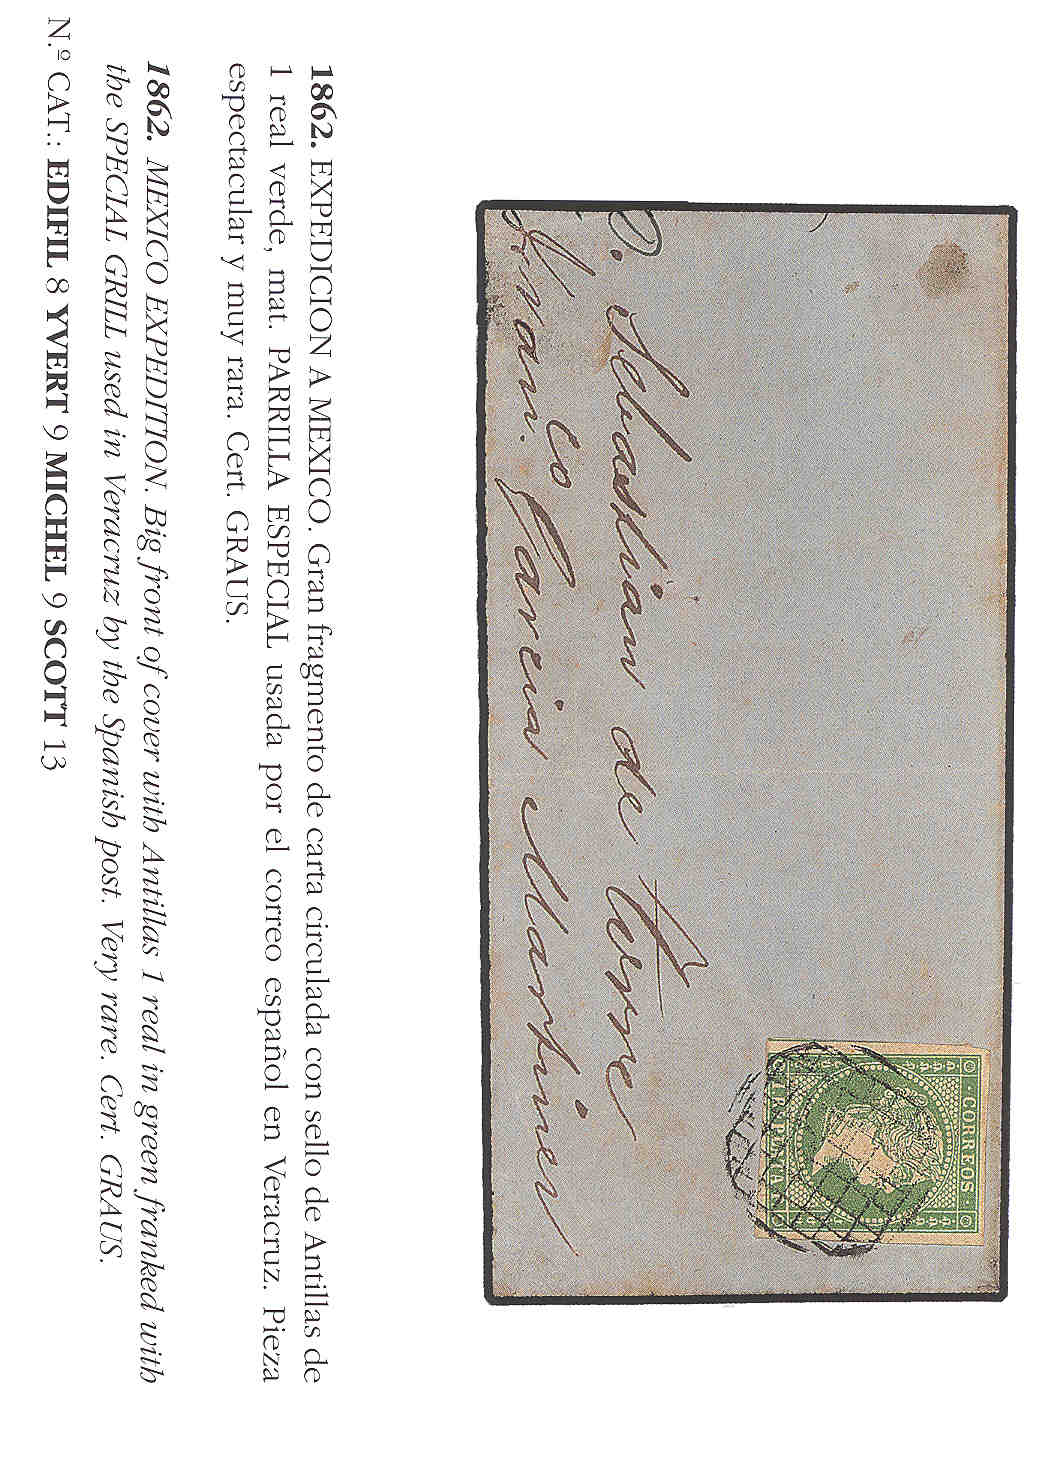 CORREOS
1 R! PLATA F.
D. Sebastian de Torre
Fran.co Garcia Martinez
1862. EXPEDICION A MEXICO. Gran fragmento de carta circulada con sello de Antillas de
1 real verde, mat. PARRILLA ESPECIAL usada por el correo español en Veracruz. Pieza
espectacular y muy rara. Cert. GRAUS.
1862. MEXICO EXPEDITION. Big front of cover with Antillas 1 real in green franked with
the SPECIAL GRILL used in Veracruz by the Spanish post. Very rare. Cert. GRAUS.
N.º CAT.: EDIFIL 8 YVERT 9 MICHEL 9 SCOTT 13